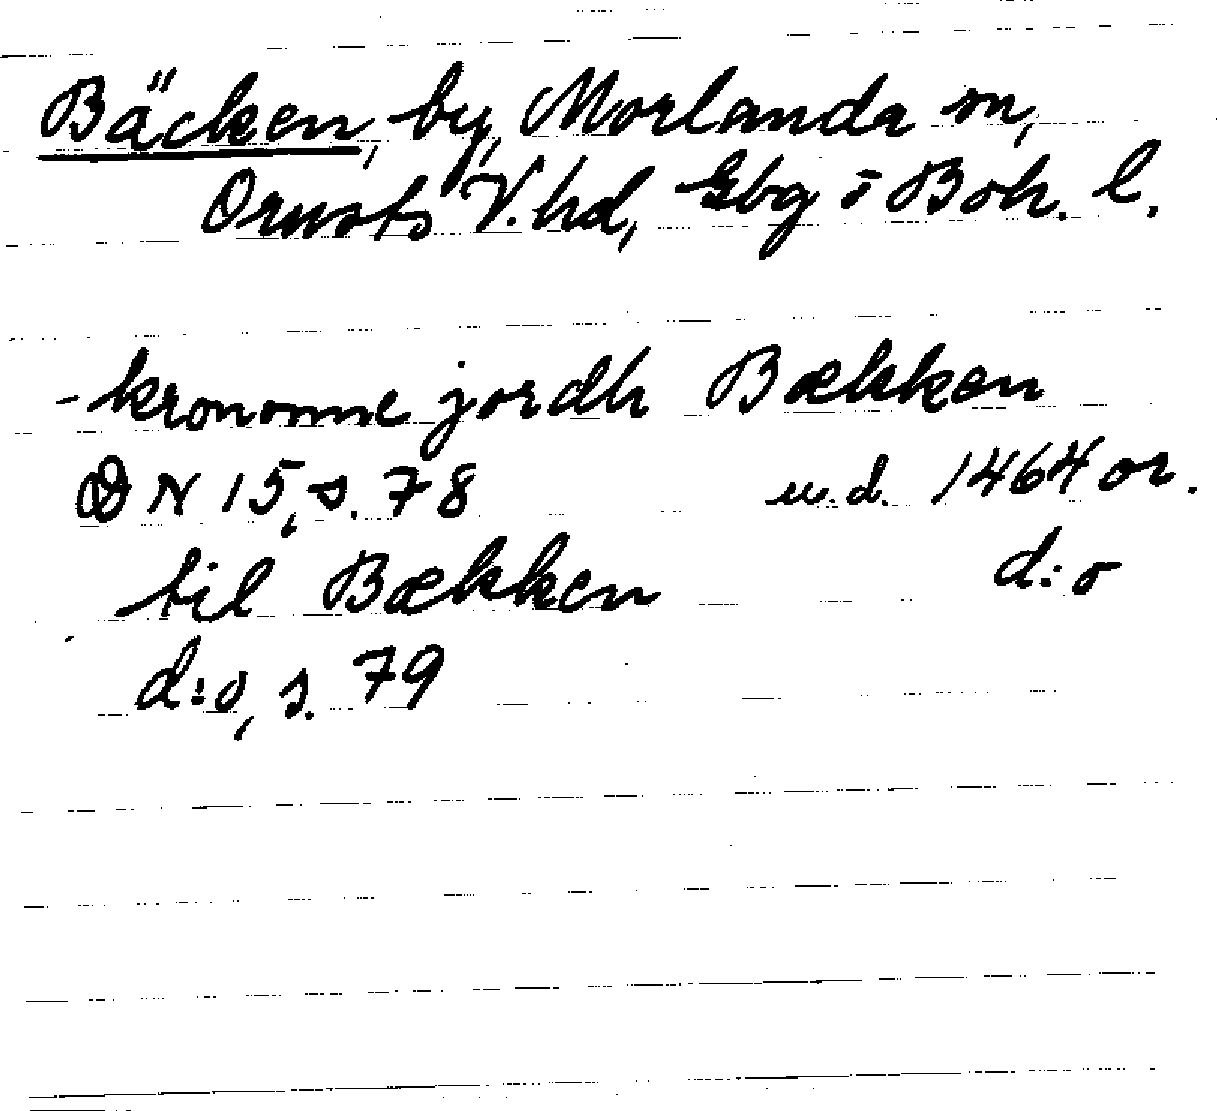 Bäcken, by, Morlanda sn,
Orusts V. hd, Gbg o Boh. l.
- kronome jordh Bækken
DN 15, s. 78 u.d. 1464 or.
til Bækken d:o
d:o, s. 79